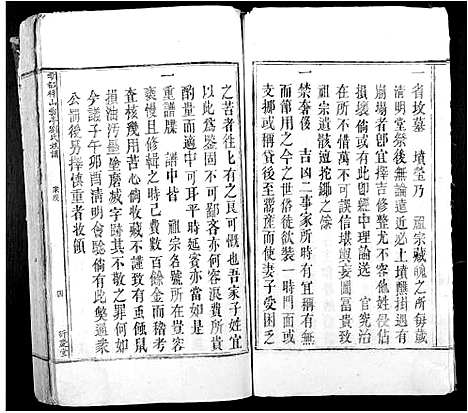 一省坟墓　墳塋乃　祖宗藏魄之所每歲
清明堂祭後無論遠近必上墳醮掛遇有
崩塌者即宜擇吉修整尤不容他姓侵佔
損壞倘或有此即經中理論送　官究治
亦不惜萬不可誤信堪輿妄圖富貴致
祖宗遺骸遭拕鋤之慘
一禁奢侈　吉凶二事家所時有宜有
節而用之今之世俗往往一時門面或
支挪借貸甚至鬻産而使妻子受困乏
之苦者往往有之良可慨也吾家子姓宜
以此為鑒固不可鄙吝亦何容浪費所貴
酌量而適中可耳平時延賓亦當如是
一　重譜牒　譜中皆　祖宗名號所在豈
褻慢且修輯之時已費數百餘金而稿經
查核幾費苦心倘收藏不謹致有重蝕鼠
損油汚墨塗磨滅字跡其不敬之罪何如
今議子午卯酉清明會驗倘有此獘通衆
公罰後另擇慎重者收領
家規
四